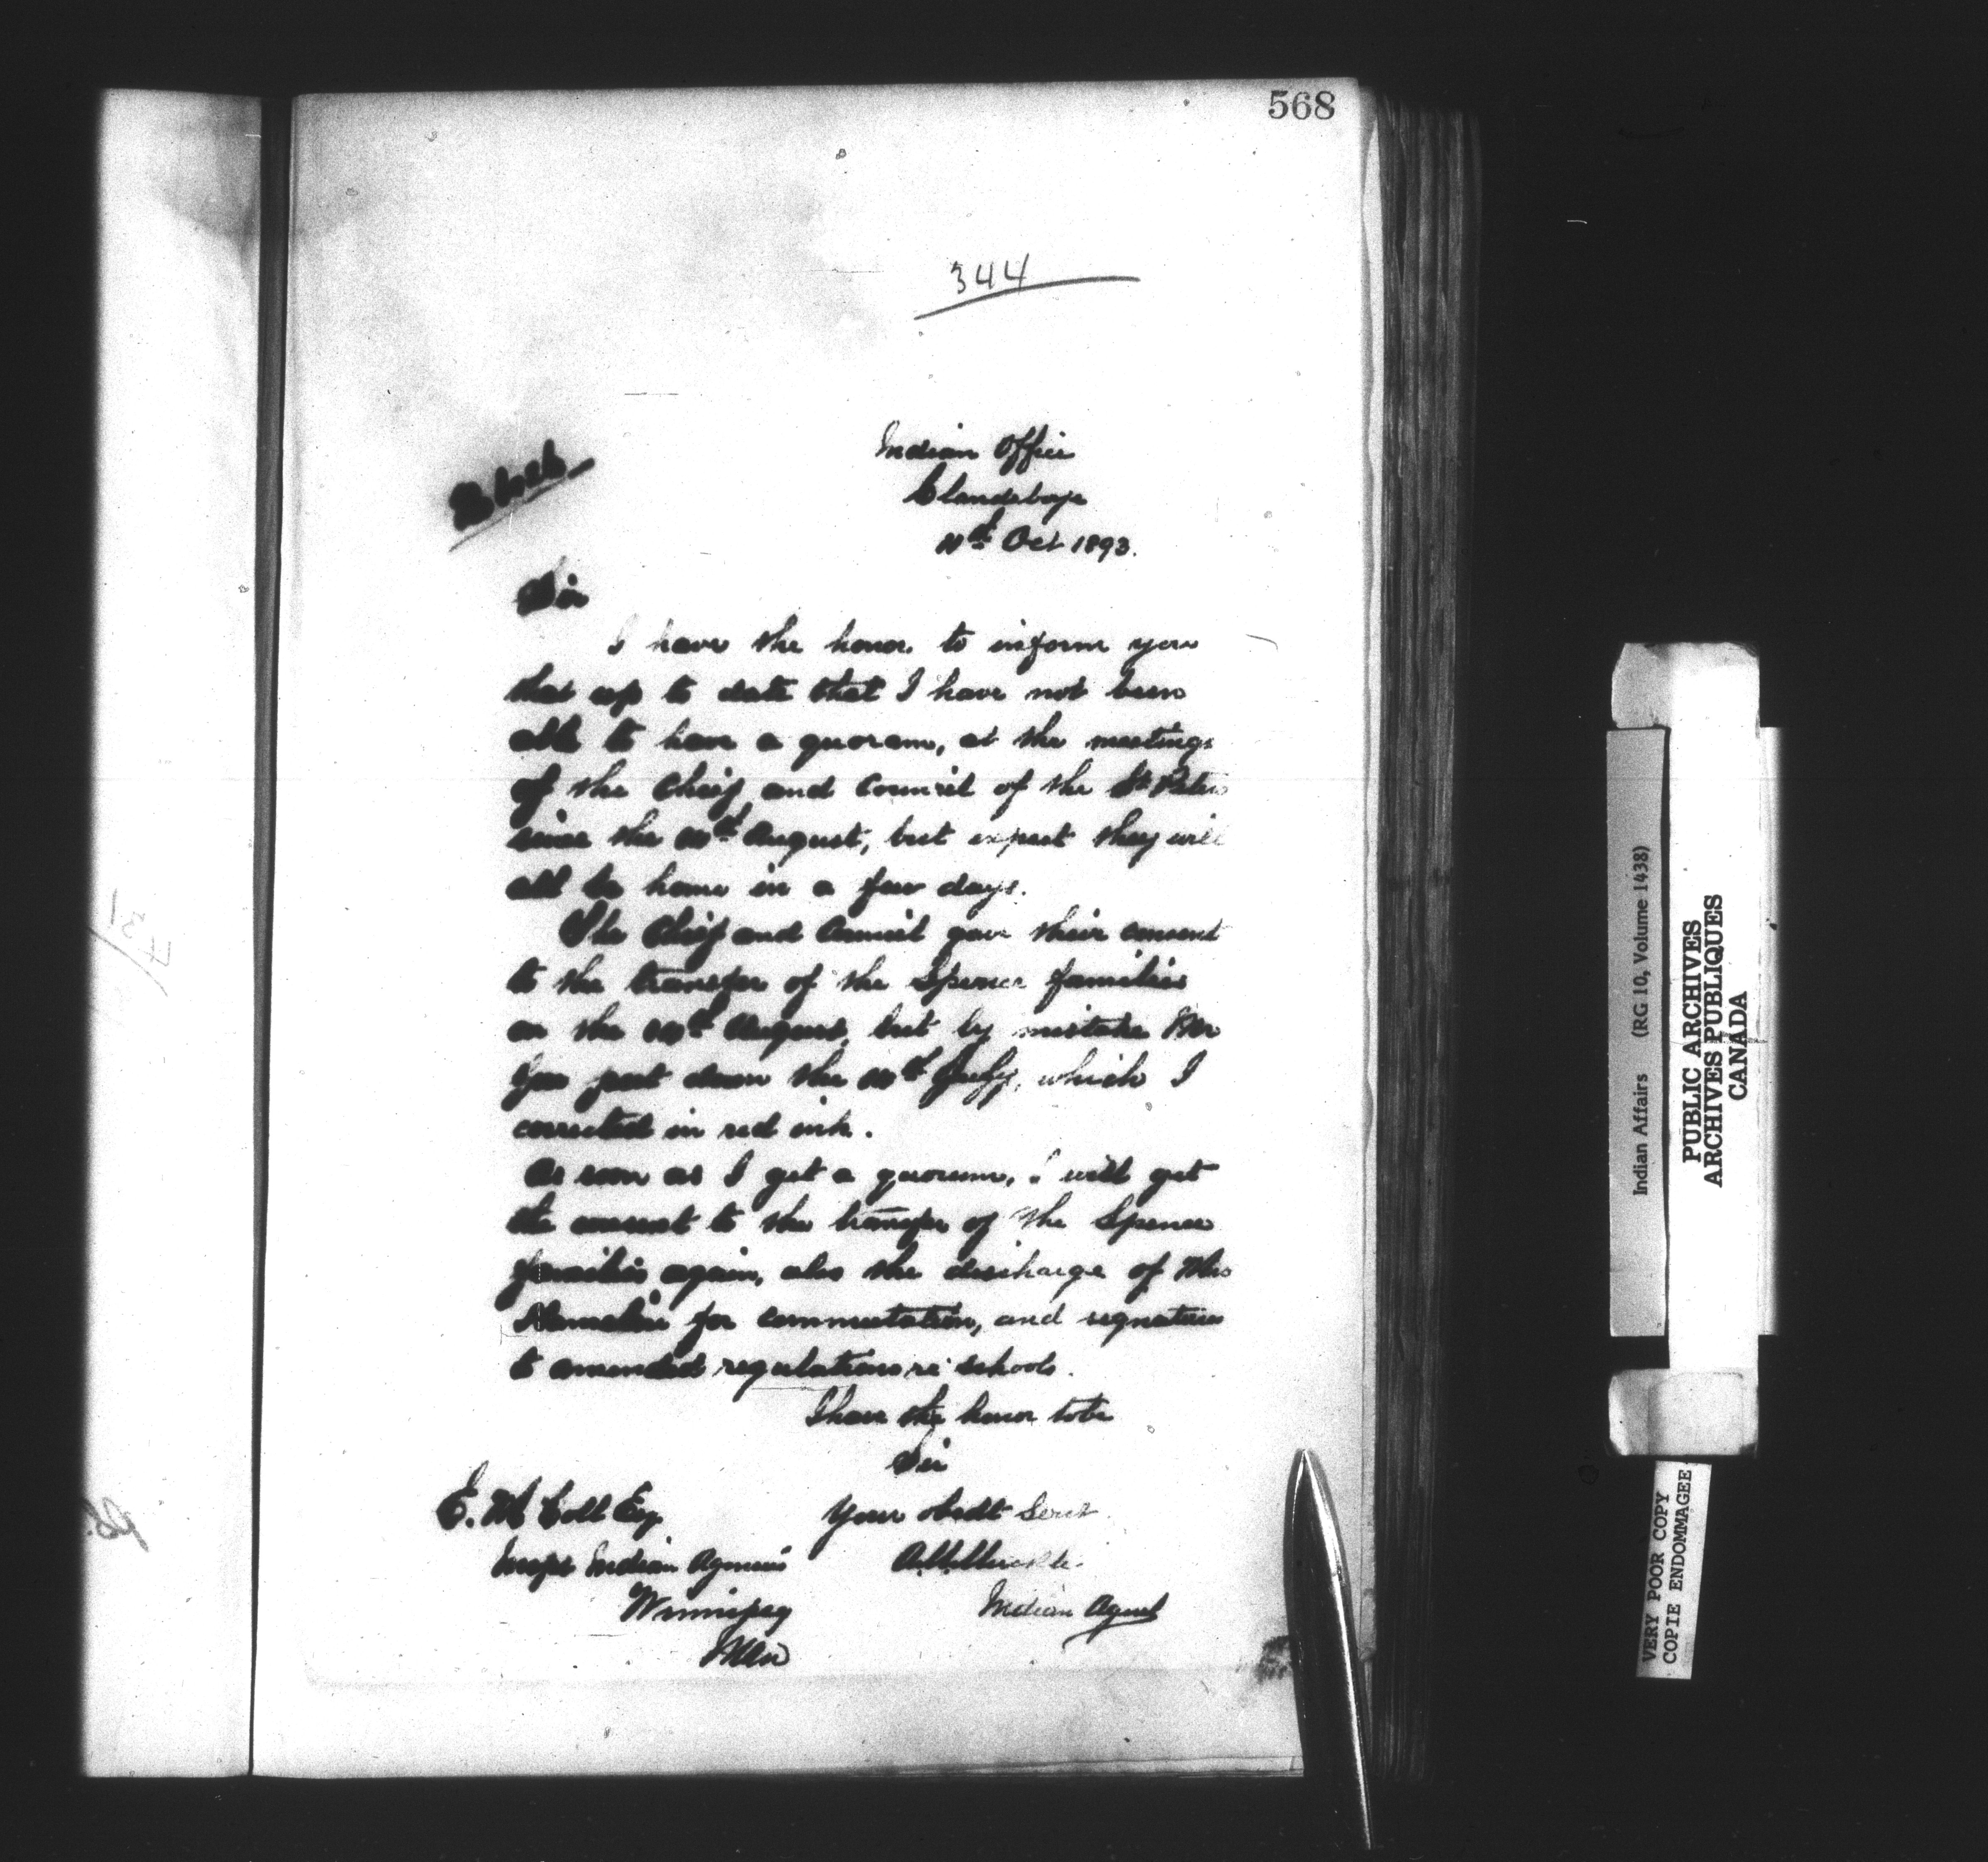 568
344
Indian Office
Clandeboye
11th Oct 1893.
Sir
I have the honor to inform you
that up to date that I have not been
able to have a quoram, at the meetings
of the Chief and Council of the St Peters
since the 10th August, but expect they will
all be home in a few days.
The Chief and Council gave their consent
to the transfer of the Spence families
on the 10th August, but by mistake Mr
put down the 10th July, which I
corrected in red ink.
As soon as I get a quorum, I will get
the consent to the transfer of the Spence
families again, also the discharge of Mrs
for commutation, and signatures
to amended regulations re schools.
I have the honor to be
Sir
Your obedt Servt
Indian Agent
E. McColl Esq
Inspt Indian Agencies
Winnipeg
Man
Indian Affairs (RG 10, Volume 1438)
PUBLIC ARCHIVES
ARCHIVES PUBLIQUES
CANADA
VERY POOR COPY
COPIE ENDOMMAGEE